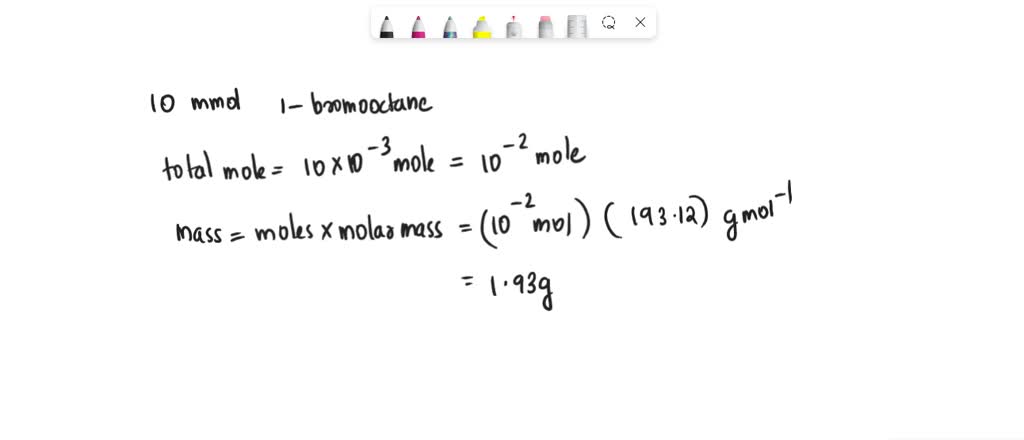 10 mmol 1- bromooctane
total mole = 10 x 10⁻³ mole = 10⁻² mole
mass = moles x molar mass = (10⁻² mol) (193.12) g mol⁻¹
= 1.93g